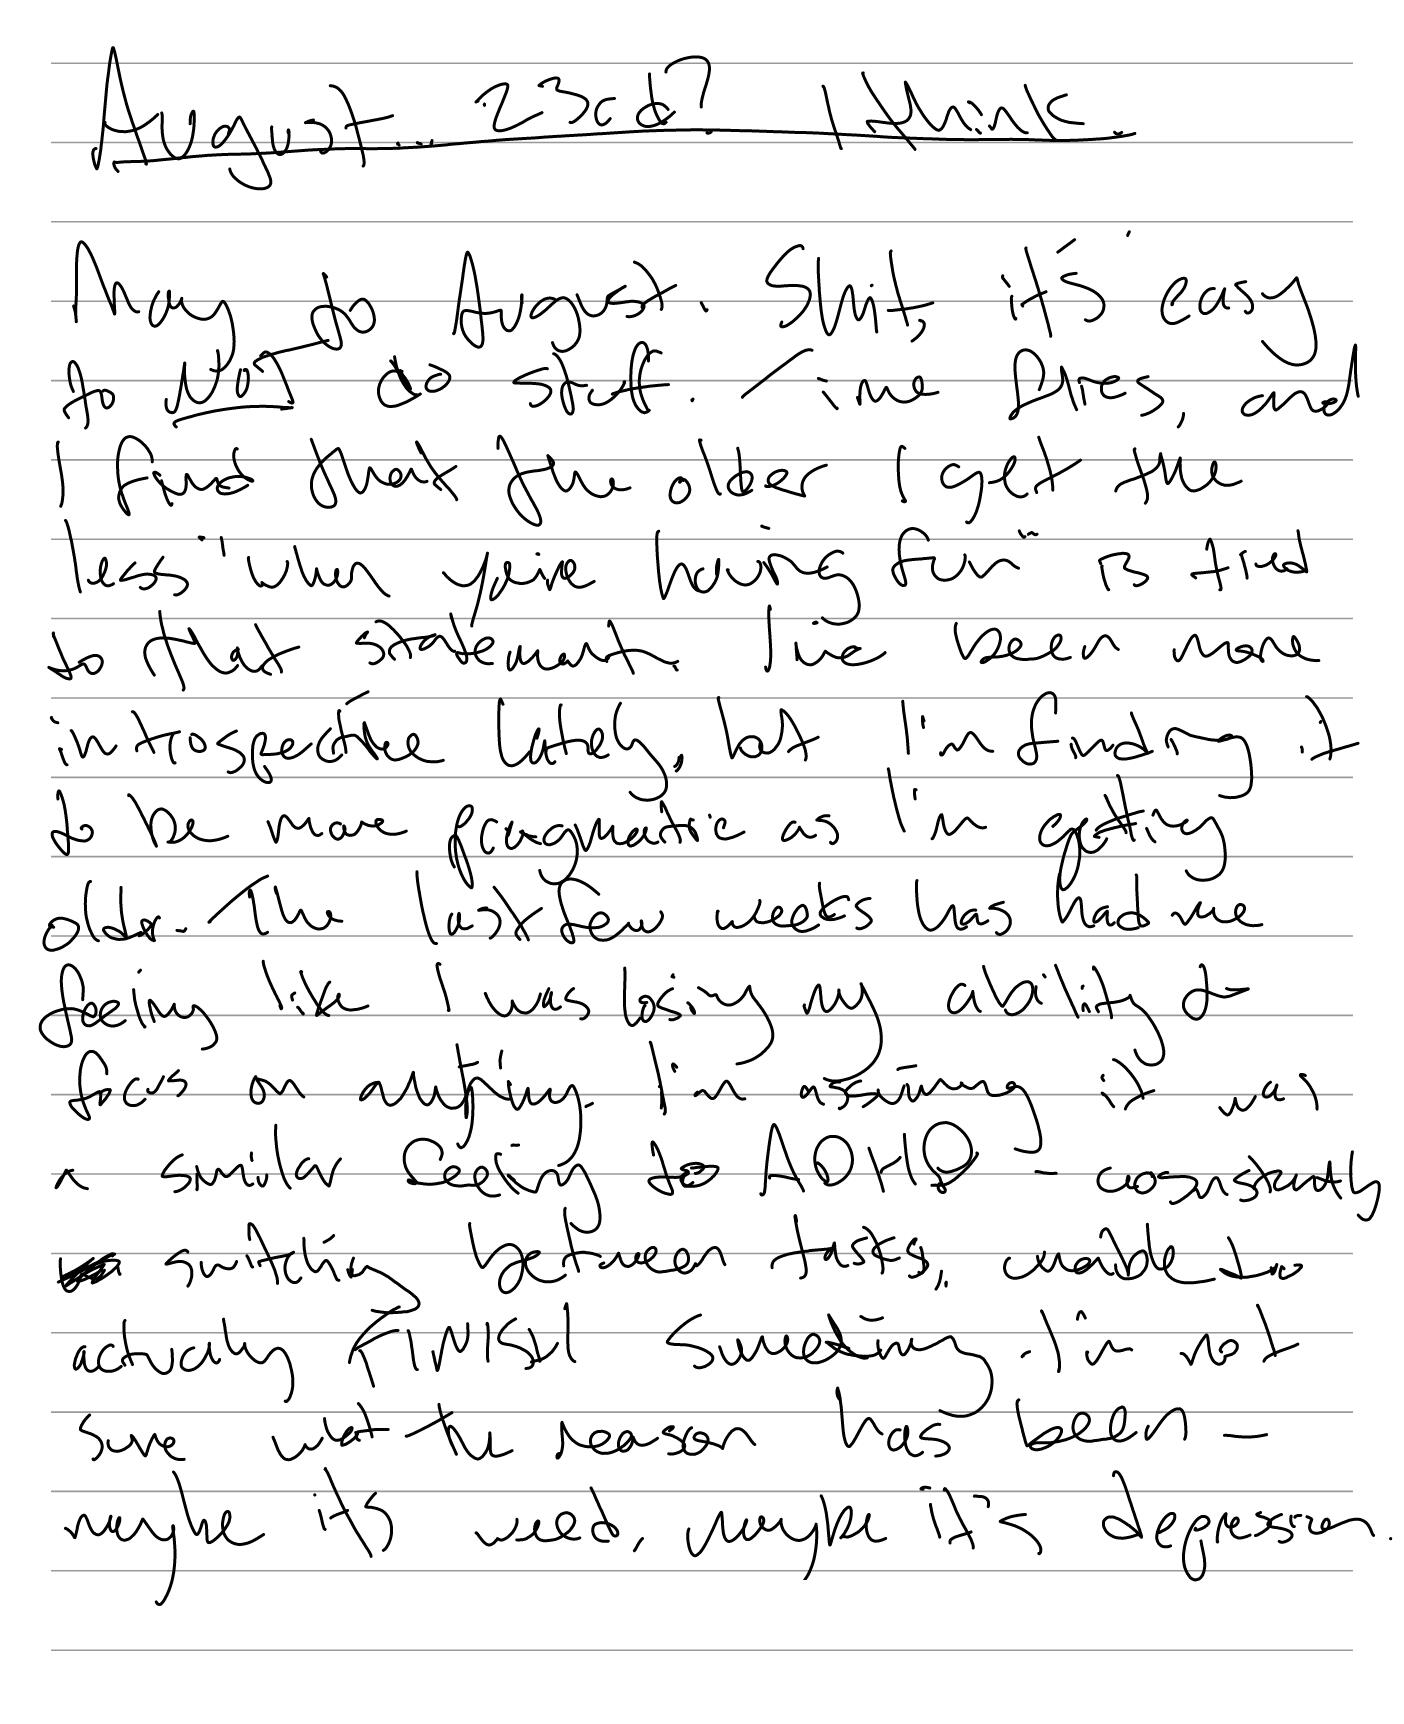 August... 23rd? I think.
May to August. Shit, it's easy
to NOT do stuff. Time flies, and
I find that the older I get the
less "when you're having fun" is tied
to that statement. I've been more
introspective lately, but I'm finding it
to be more pragmatic as I'm getting
older. The last few weeks has had me
feeling like I was losing my ability to
focus on anything. I'm assuming it was
a similar feeling to ADHD - cosnstantly
switching between tasks, unable to
actually FINISH something. I'm not
sure what the reason has been -
maybe it's weed, maybe it's depression.